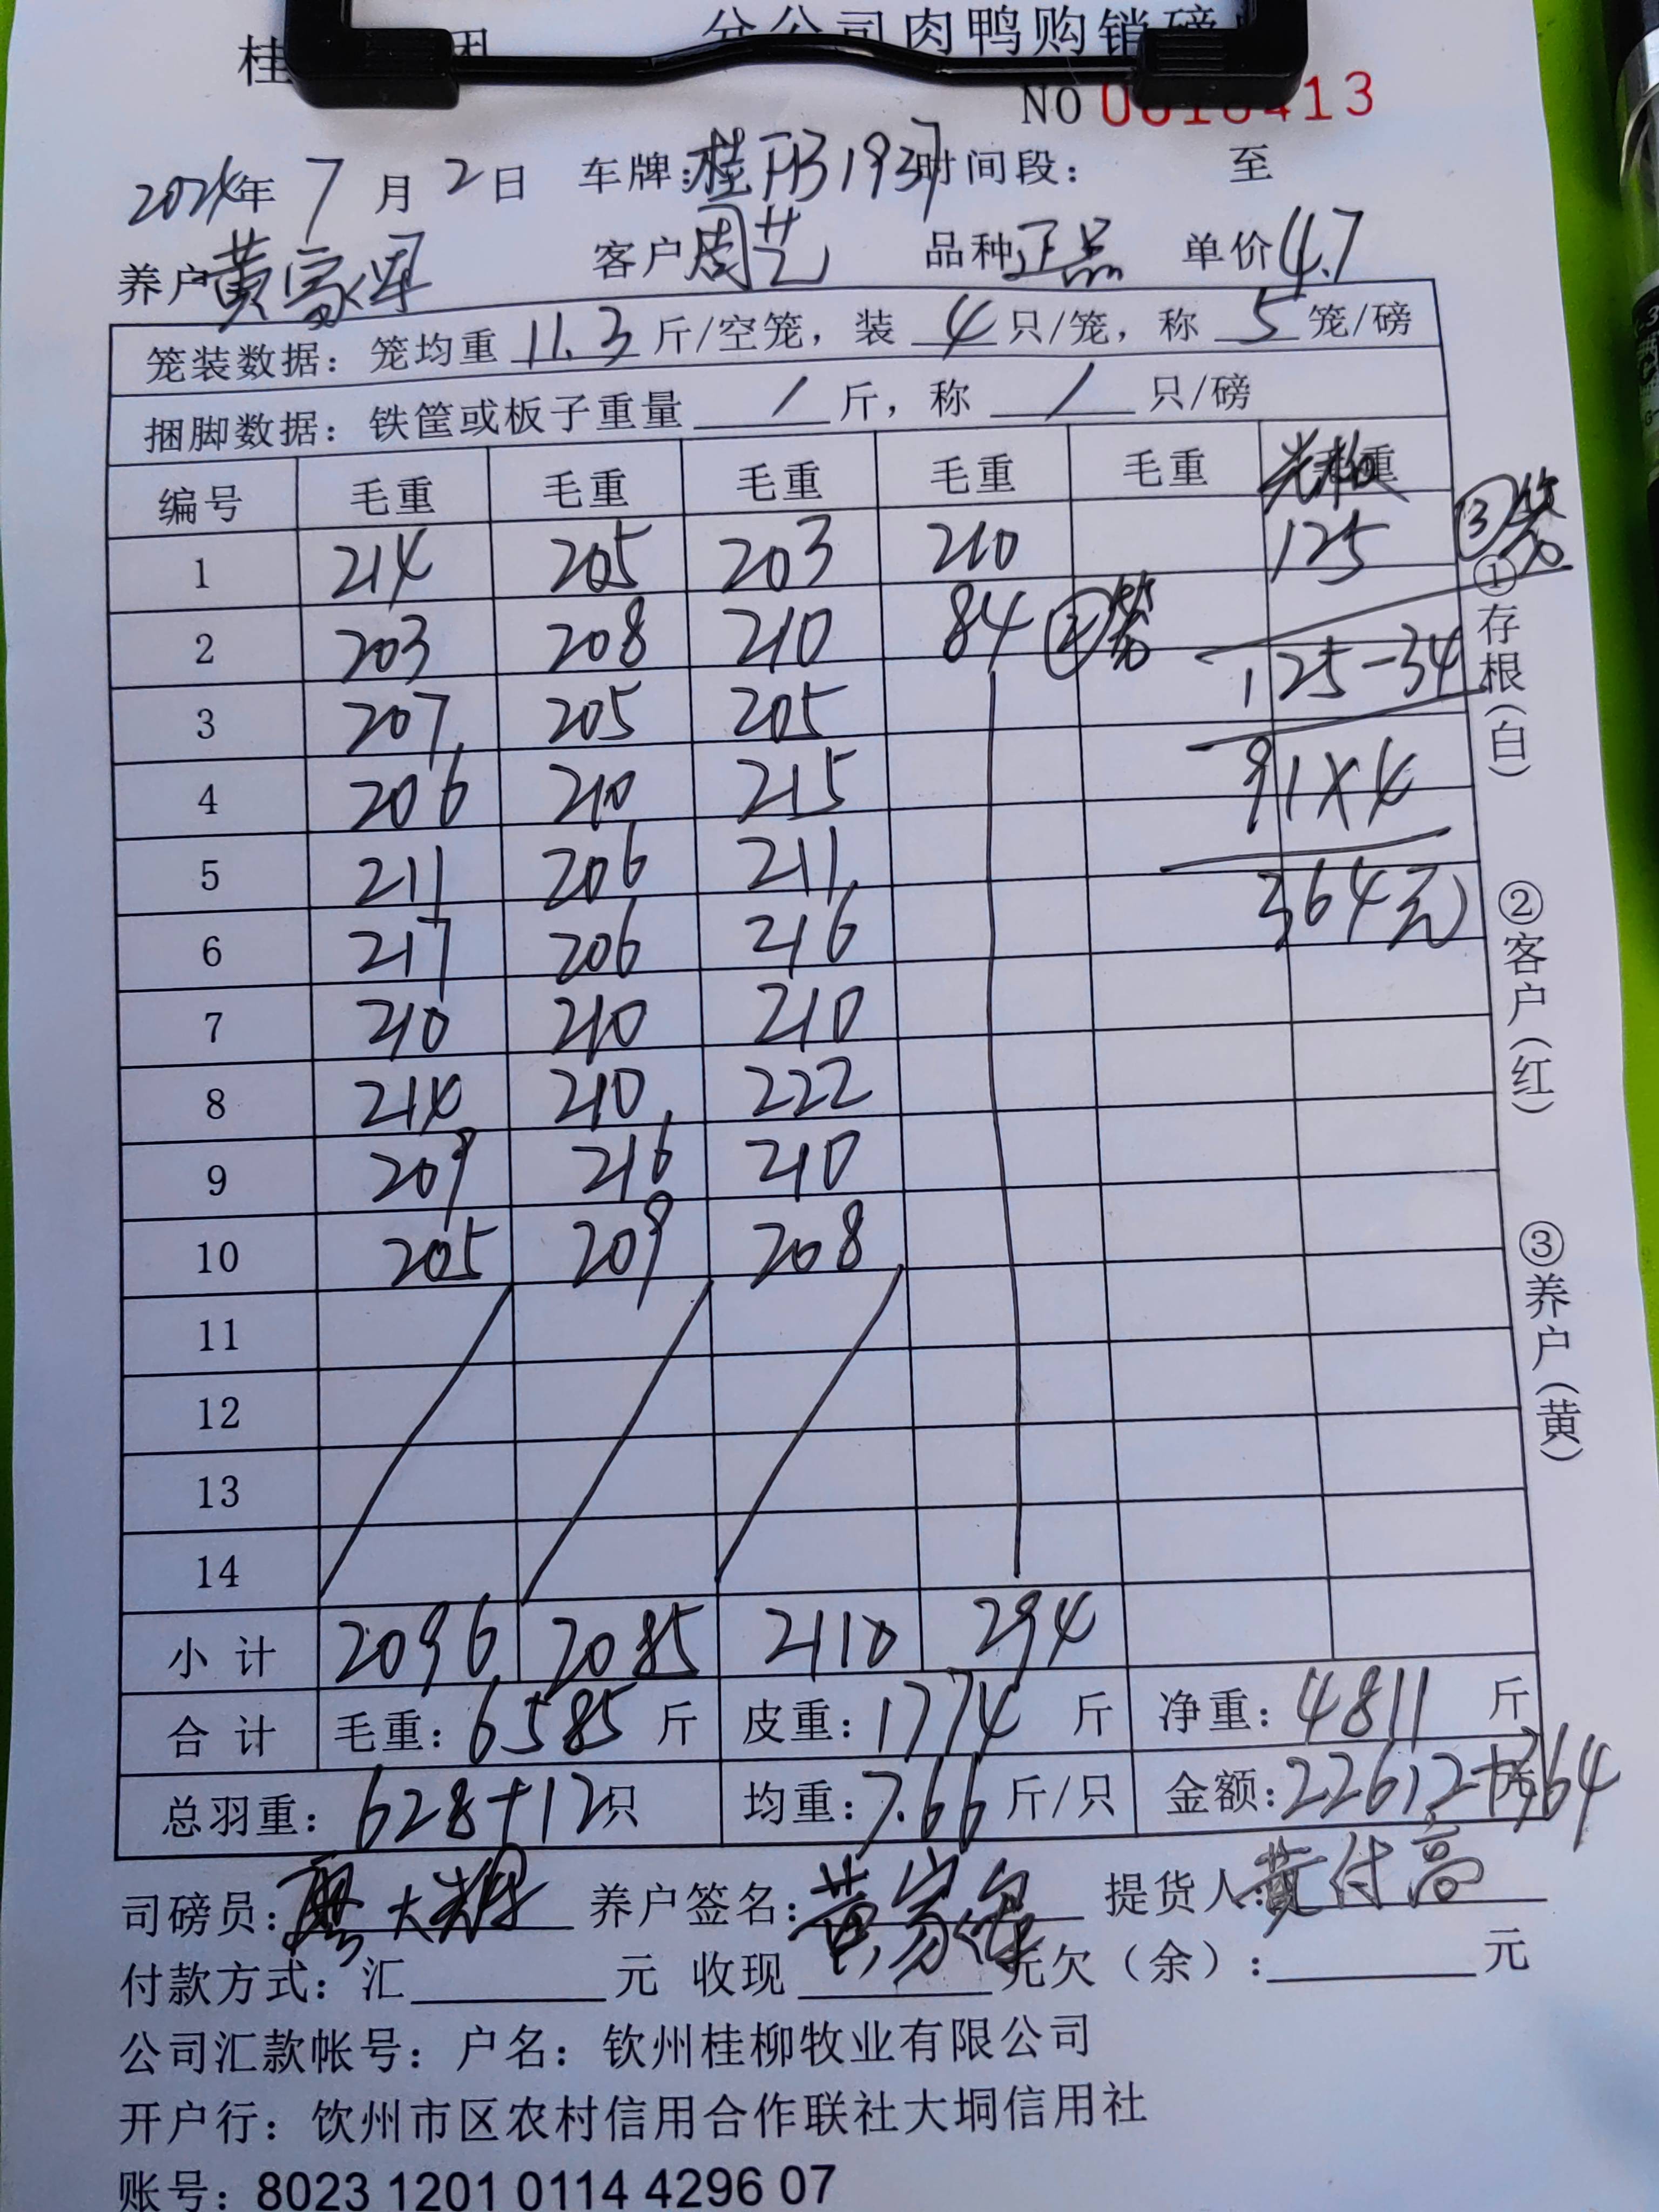 桂 分公司肉鸭购销磅
NO 0018413
2024年 7 月 2 日 车牌: 桂 1937 时间段: 至
养户 黄家军 客户 周艺 品种 正品 单价 4.7
笼装数据: 笼均重 11.3 斤/空笼, 装 4 只/笼, 称 5 笼/磅
捆脚数据: 铁筐或板子重量 / 斤, 称 / 只/磅
编号 毛重 毛重 毛重 毛重 毛重 重
1 214 205 203 210 125 ③笼
2 203 208 210 84 ②笼 125-34
3 207 205 205
4 206 210 215 91×4
5 211 206 211
6 217 206 216 364元
7 210 210 210
8 214 210 222
9 209 216 210
10 205 209 208
11
12
13
14
小计 2096 2085 2110 294
合计 毛重: 6585 斤 皮重: 1774 斤 净重: 4811 斤
总羽重: 628+12只 均重: 7.66 斤/只 金额: 22612+364
司磅员: 廖大 养户签名: 黄家 提货人: 黄付高
付款方式: 汇 元 收现 元欠(余): 元
公司汇款帐号: 户名: 钦州桂柳牧业有限公司
开户行: 饮州市区农村信用合作联社大垌信用社
账号: 8023 1201 0114 4296 07
①存根(白)
②客户(红)
③养户(黄)